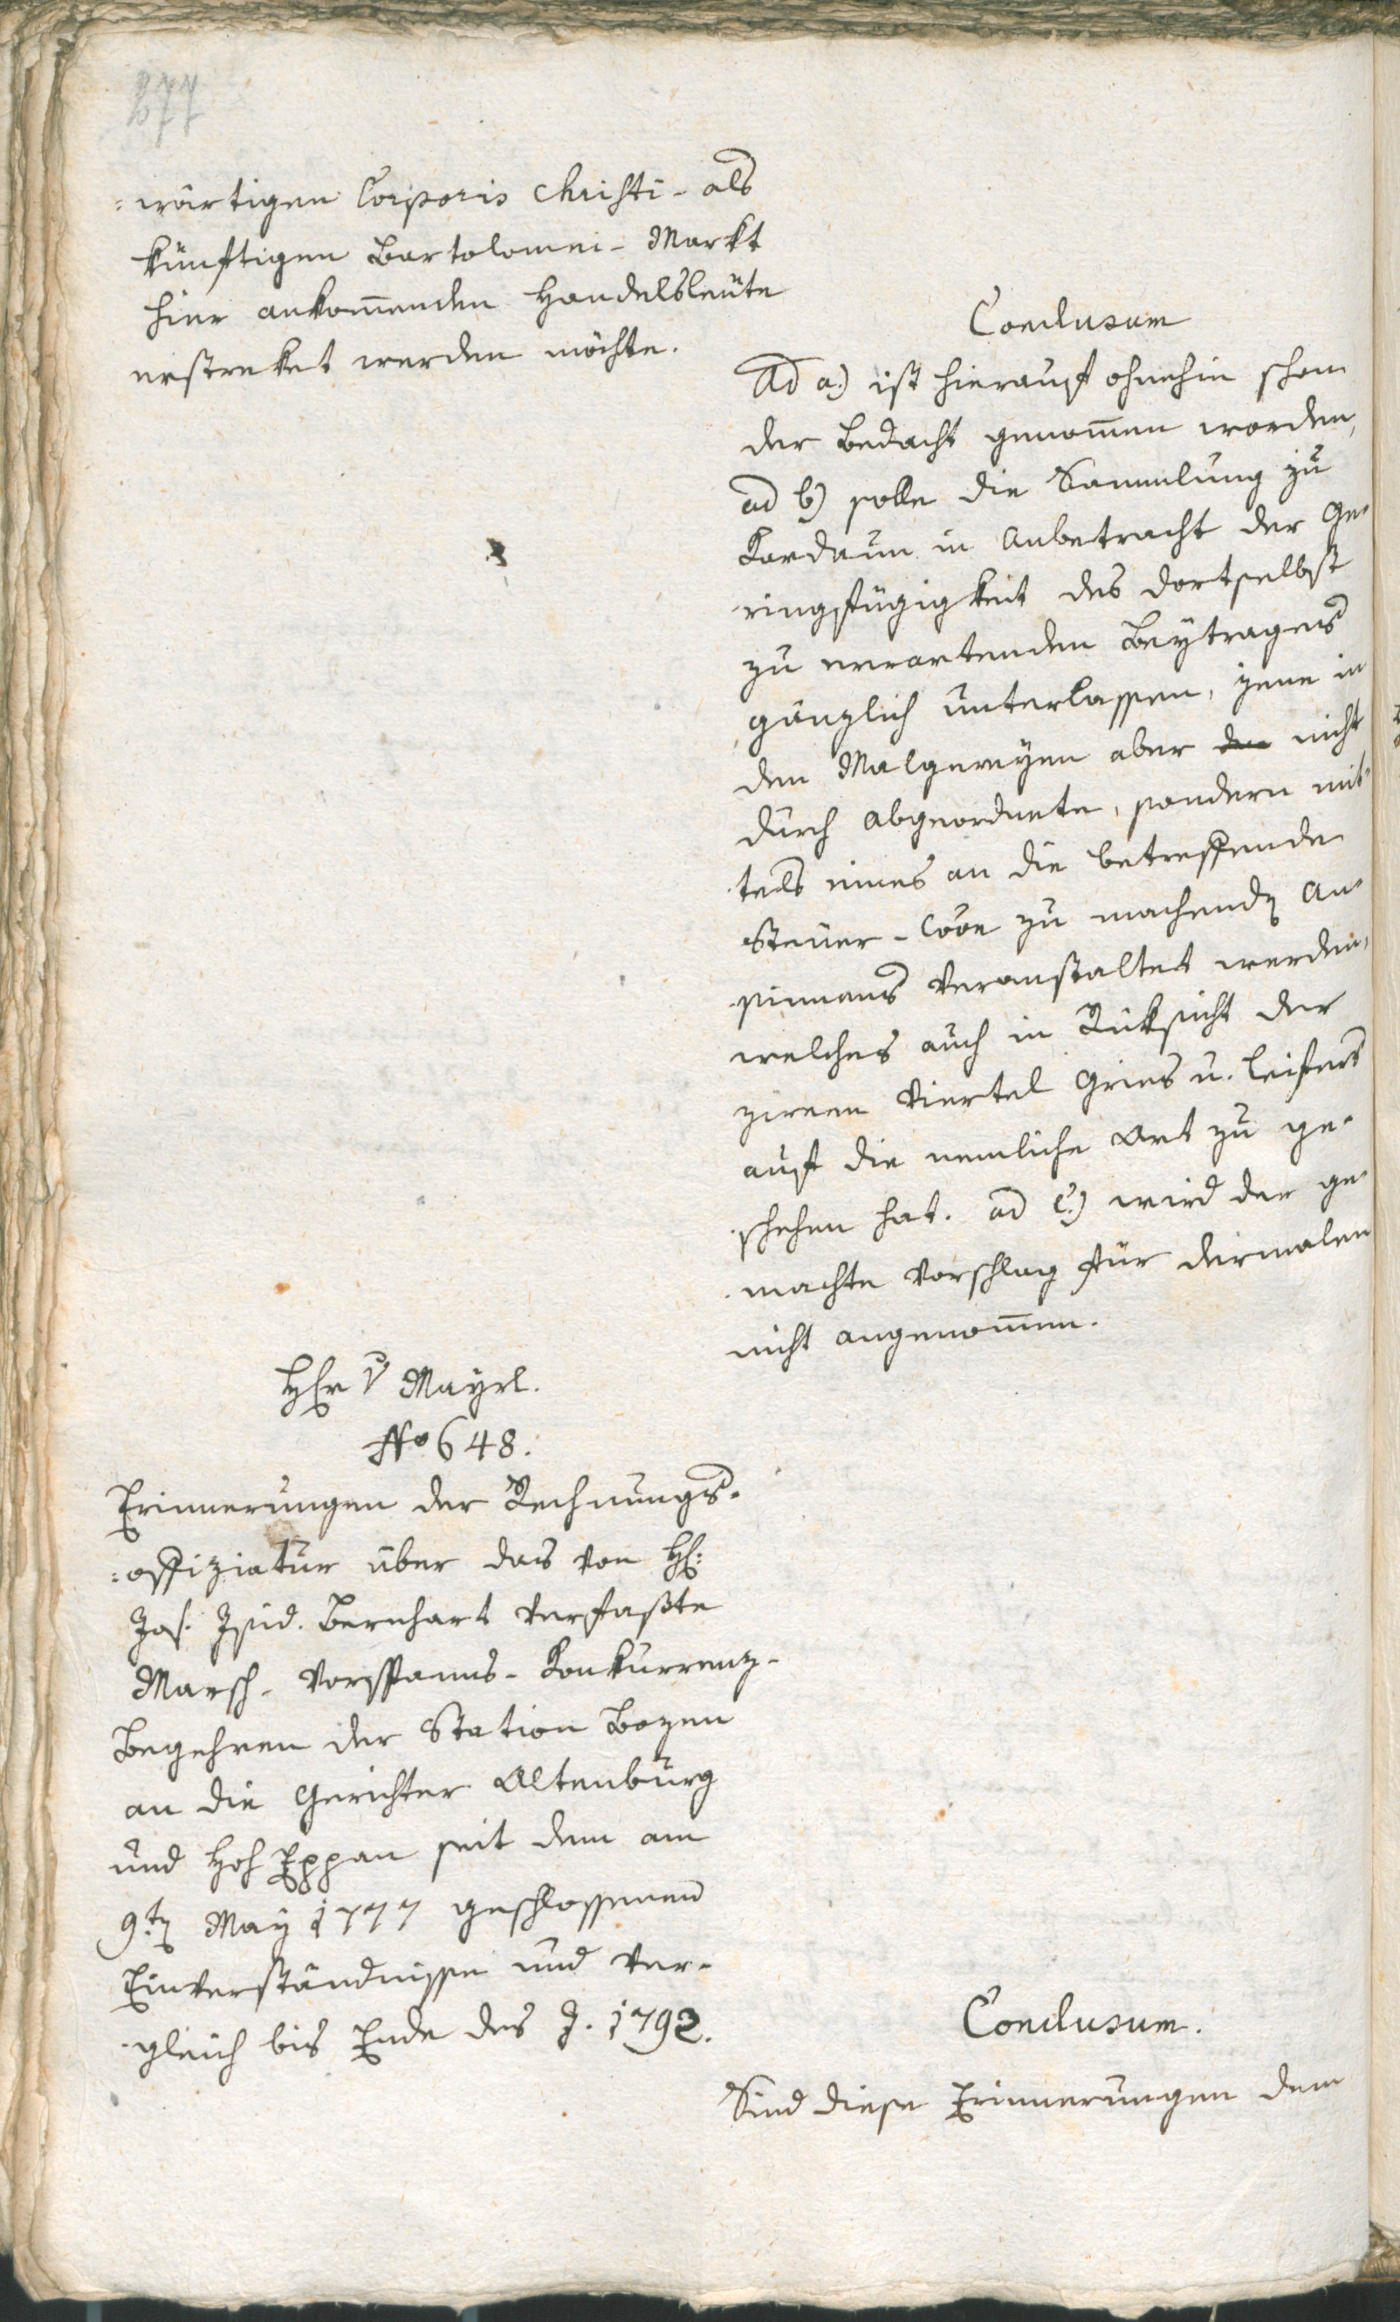 277
=wärtigen Corporis Christi- als
künftigen Bartolomei- Markt
hier ankom̅enden Handelsleüte
erstreket werden möchte.
Conclusum
Ad a.) ist hierauf ohnehin schon
der Bedacht genom̅en worden,
ad b) solle die Sammlung zu
Kardaun in Anbetracht der Ge-
ringfügigkeit des dortselbst
zu erwartenden Beytrages
gänzlich unterlassen, jene in
den Malgereyen aber nicht
durch Abgeordnete, sondern mit-
tels eines an die betreffende
Steuer- zu machendn An-
sinnens veranstaltet werden,
welches auch in Rüksicht der
zween Viertel Gries u. Leifers
auf die nemliche Art zu ge-
schehen hat. ad c.) wird der ge-
machte Vorschlag für dermalen
nicht angenom̅en.
Hhr v Mayrl.
No 648.
Erinnerungen der Rechnungs-
=offiziatur über das von Hh:
Jos. Isid. Bernhart verfaßte
Marsch- Vorspanns- Konkurrenz-
Begehren der Station Bozen
an die Gerichter Altenburg
und Hoh Eppan seit dem am
9.tn May 1777 geschlossenen
Einverständnisse und Ver-
gleich bis Ende des J. 1792.
Conclusum.
Sind diese Erinnerungen dem